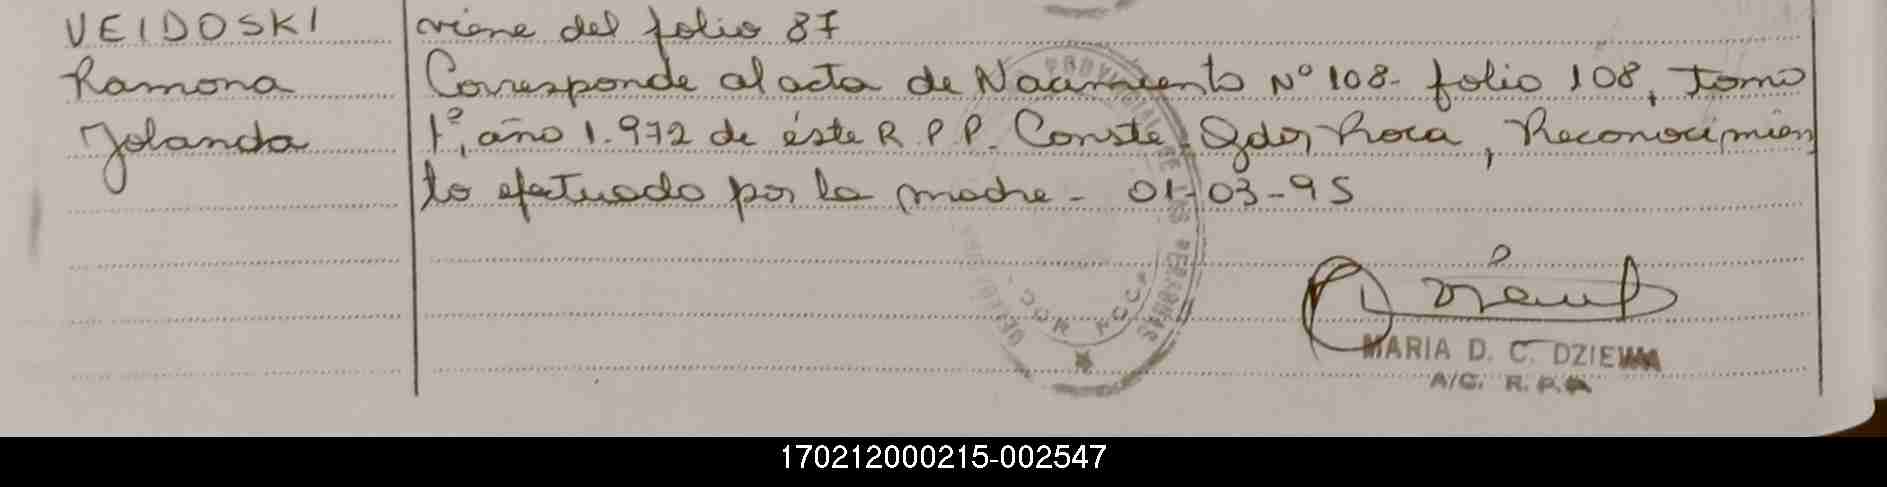 VEIDOSKI
Ramona
Yolanda
viene del folio 87
Corresponde al acta de Nacimiento Nº 108- folio 108, tomo
1º, año 1.972 de éste R.P.P. Conste. Gdor Roca, Reconocimien
to efectuado por la madre - 01-03-95
MARIA D. C. DZIEWA
A/C. R. P.
170212000215-002547